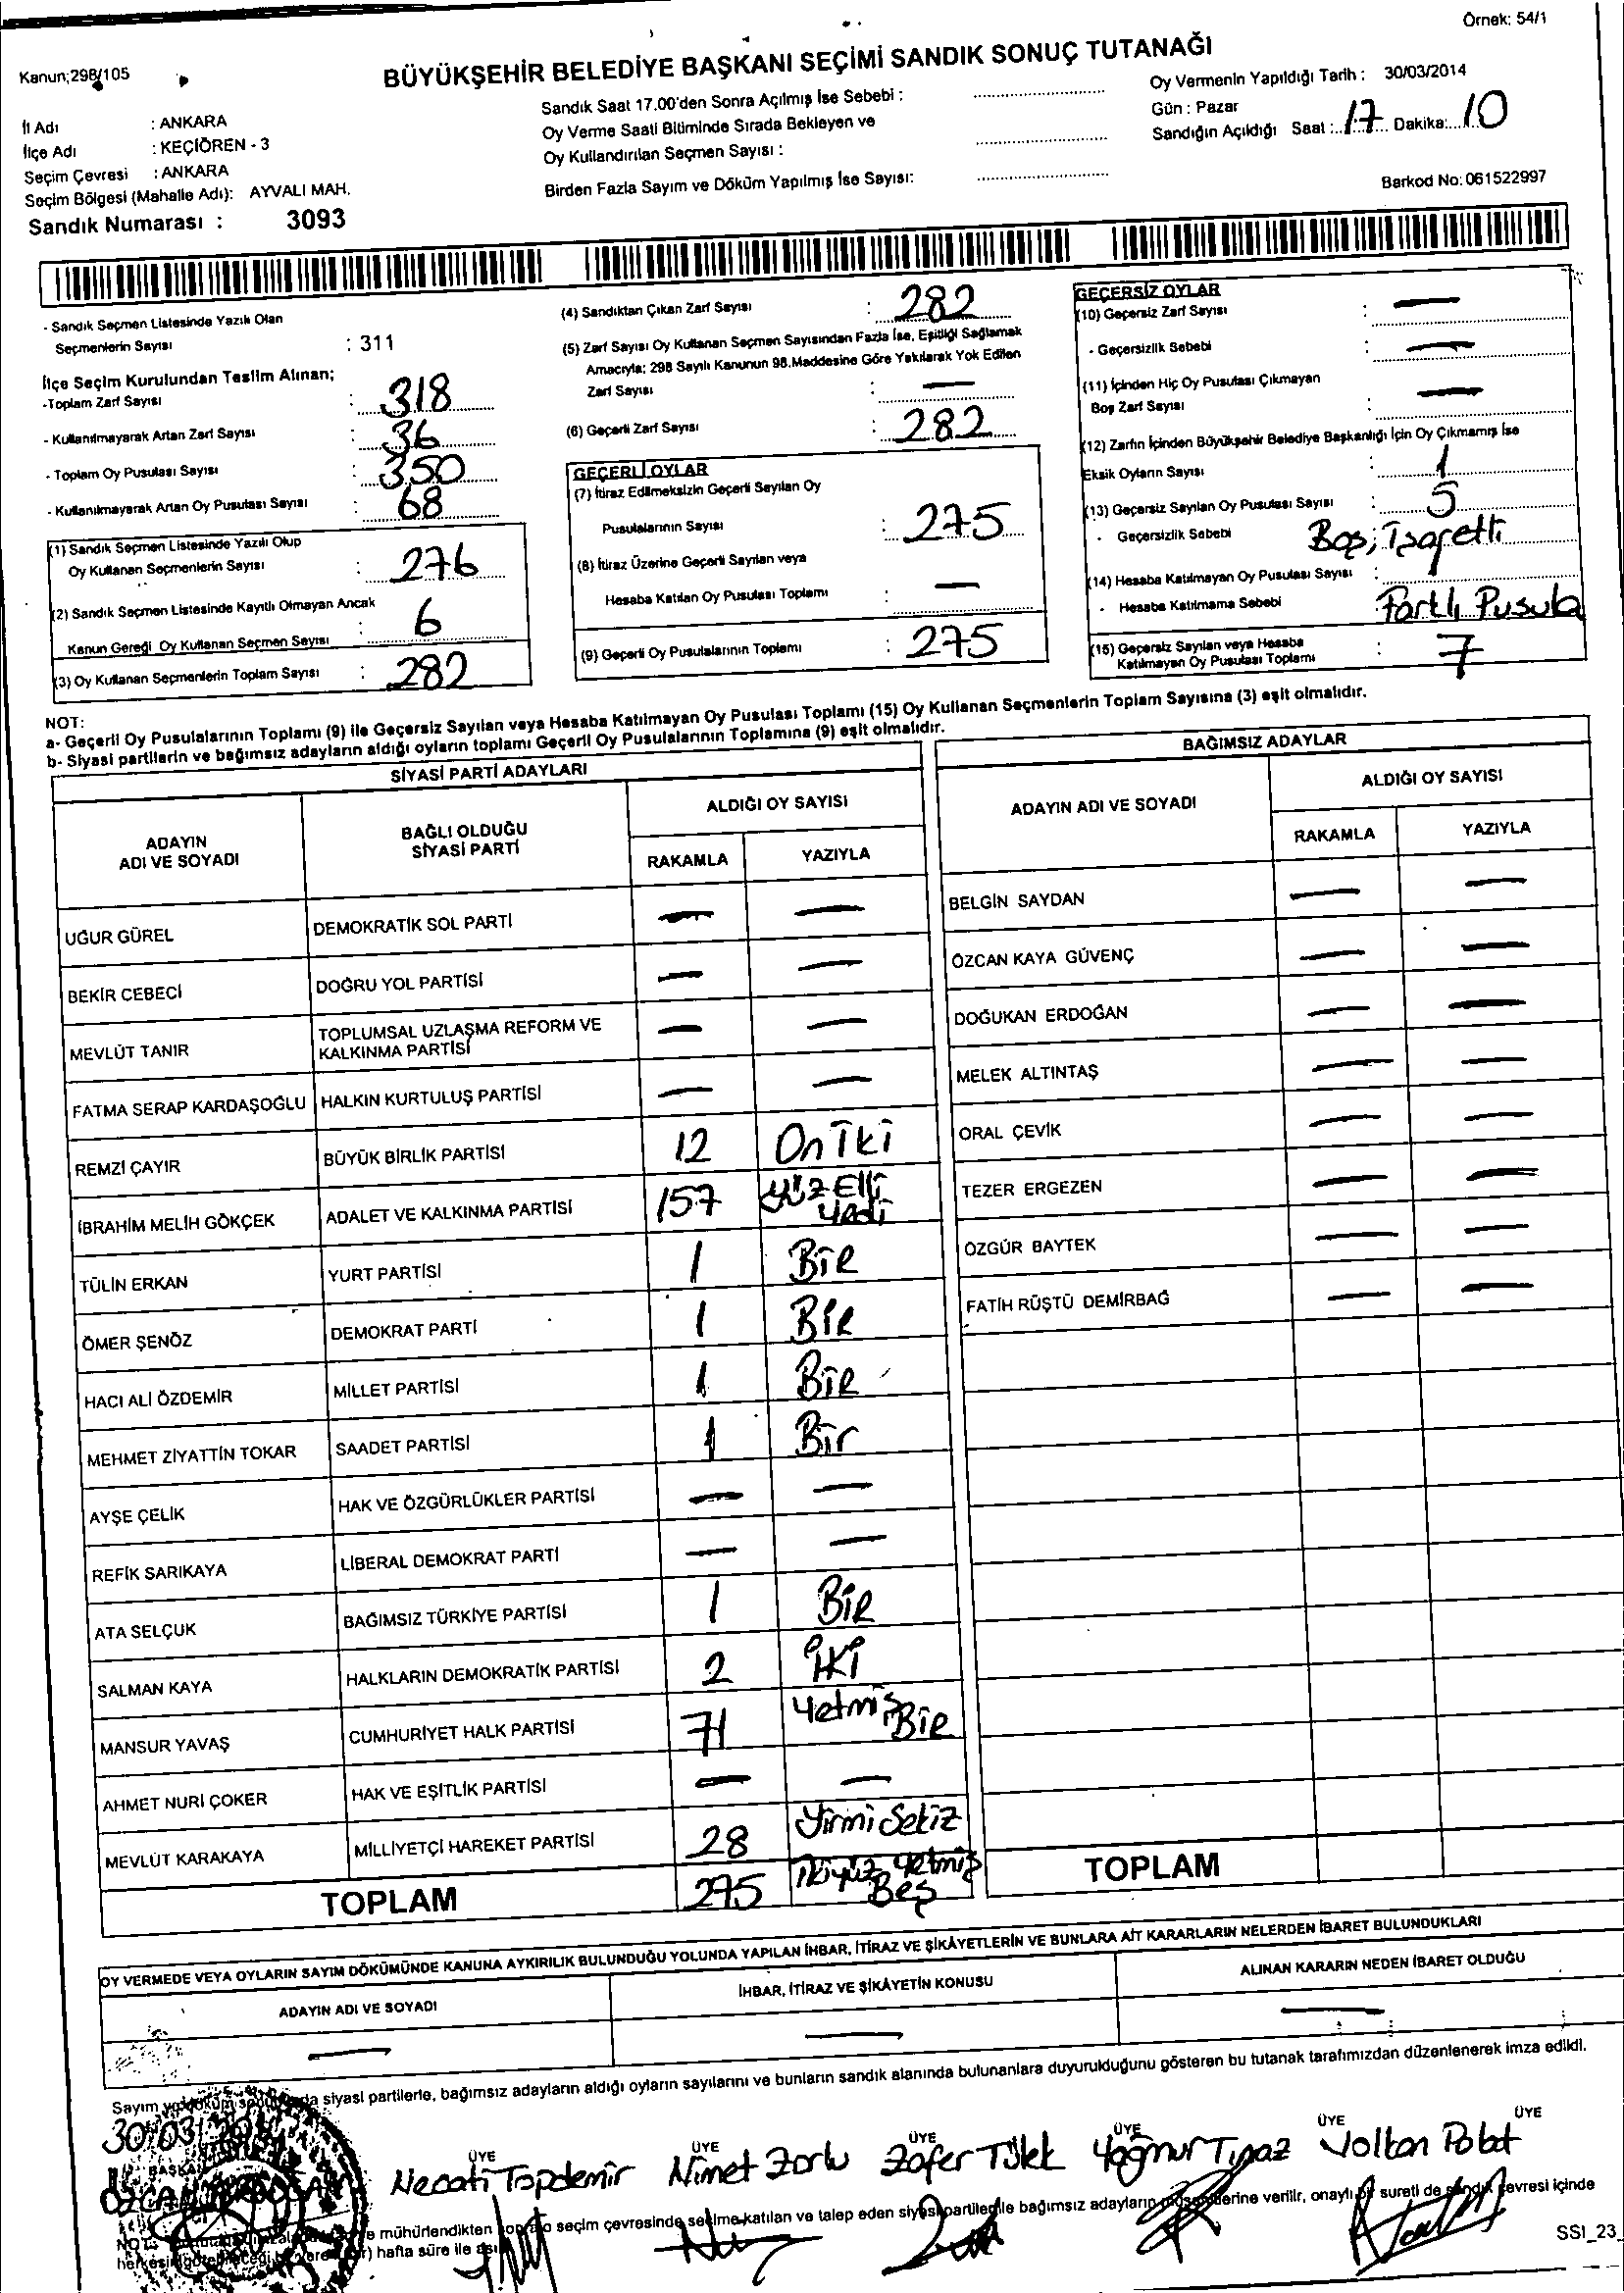 Örnek: 54/1
Kanun;298/105
BÜYÜKŞEHİR BELEDİYE BAŞKANI SEÇİMİ SANDIK SONUÇ TUTANAĞI
İl Adı : ANKARA
İlçe Adı : KEÇİÖREN - 3
Seçim Çevresi : ANKARA
Seçim Bölgesi (Mahalle Adı): AYVALI MAH.
Sandık Numarası : 3093
Sandık Saat 17.00'den Sonra Açılmış İse Sebebi :
Oy Verme Saati Bitiminde Sırada Bekleyen ve
Oy Kullandırılan Seçmen Sayısı :
Birden Fazla Sayım ve Döküm Yapılmış İse Sayısı:
Oy Vermenin Yapıldığı Tarih : 30/03/2014
Gün : Pazar
Sandığın Açıldığı Saat : 17 Dakika: 10
Barkod No: 061522997
- Sandık Seçmen Listesinde Yazılı Olan
Seçmenlerin Sayısı : 311
İlçe Seçim Kurulundan Teslim Alınan;
-Toplam Zarf Sayısı : 318
- Kullanılmayarak Artan Zarf Sayısı : 36
- Toplam Oy Pusulası Sayısı : 350
- Kullanılmayarak Artan Oy Pusulası Sayısı : 68
(1) Sandık Seçmen Listesinde Yazılı Olup
Oy Kullanan Seçmenlerin Sayısı : 276
(2) Sandık Seçmen Listesinde Kayıtlı Olmayan Ancak
Kanun Gereği Oy Kullanan Seçmen Sayısı : 6
(3) Oy Kullanan Seçmenlerin Toplam Sayısı : 282
(4) Sandıktan Çıkan Zarf Sayısı : 282
(5) Zarf Sayısı Oy Kullanan Seçmen Sayısından Fazla İse, Eşitliği Sağlamak
Amacıyla; 298 Sayılı Kanunun 98.Maddesine Göre Yakılarak Yok Edilen
Zarf Sayısı : —
(6) Geçerli Zarf Sayısı : 282
GEÇERLİ OYLAR
(7) İtiraz Edilmeksizin Geçerli Sayılan Oy
Pusulalarının Sayısı : 275
(8) İtiraz Üzerine Geçerli Sayılan veya
Hesaba Katılan Oy Pusulası Toplamı : —
(9) Geçerli Oy Pusulalarının Toplamı : 275
GEÇERSİZ OYLAR
(10) Geçersiz Zarf Sayısı : —
- Geçersizlik Sebebi : —
(11) İçinden Hiç Oy Pusulası Çıkmayan
Boş Zarf Sayısı : —
(12) Zarfın İçinden Büyükşehir Belediye Başkanlığı İçin Oy Çıkmamış İse
Eksik Oyların Sayısı : 1
(13) Geçersiz Sayılan Oy Pusulası Sayısı : 5
- Geçersizlik Sebebi Boş, İşaretli
(14) Hesaba Katılmayan Oy Pusulası Sayısı :
- Hesaba Katılmama Sebebi Farklı Pusula
(15) Geçersiz Sayılan veya Hesaba
Katılmayan Oy Pusulası Toplamı : 7
NOT:
a- Geçerli Oy Pusulalarının Toplamı (9) ile Geçersiz Sayılan veya Hesaba Katılmayan Oy Pusulası Toplamı (15) Oy Kullanan Seçmenlerin Toplam Sayısına (3) eşit olmalıdır.
b- Siyasi partilerin ve bağımsız adayların aldığı oyların toplamı Geçerli Oy Pusulalarının Toplamına (9) eşit olmalıdır.
SİYASİ PARTİ ADAYLARI
ADAYIN ADI VE SOYADI BAĞLI OLDUĞU SİYASİ PARTİ ALDIĞI OY SAYISI
RAKAMLA YAZIYLA
UĞUR GÜREL DEMOKRATİK SOL PARTİ — —
BEKİR CEBECİ DOĞRU YOL PARTİSİ — —
MEVLÜT TANIR TOPLUMSAL UZLAŞMA REFORM VE KALKINMA PARTİSİ — —
FATMA SERAP KARDAŞOĞLU HALKIN KURTULUŞ PARTİSİ — —
REMZİ ÇAYIR BÜYÜK BİRLİK PARTİSİ 12 On İki
İBRAHİM MELİH GÖKÇEK ADALET VE KALKINMA PARTİSİ 157 Yüz Elli Yedi
TÜLİN ERKAN YURT PARTİSİ 1 BİR
ÖMER ŞENÖZ DEMOKRAT PARTİ 1 BİR
HACI ALİ ÖZDEMİR MİLLET PARTİSİ 1 BİR
MEHMET ZİYATTİN TOKAR SAADET PARTİSİ 1 Bir
AYŞE ÇELİK HAK VE ÖZGÜRLÜKLER PARTİSİ — —
REFİK SARIKAYA LİBERAL DEMOKRAT PARTİ — —
ATA SELÇUK BAĞIMSIZ TÜRKİYE PARTİSİ 1 BİR
SALMAN KAYA HALKLARIN DEMOKRATİK PARTİSİ 2 İKİ
MANSUR YAVAŞ CUMHURİYET HALK PARTİSİ 71 Yetmiş BİR
AHMET NURİ ÇOKER HAK VE EŞİTLİK PARTİSİ — —
MEVLÜT KARAKAYA MİLLİYETÇİ HAREKET PARTİSİ 28 Yirmi Sekiz
TOPLAM 275 İkiyüz Yetmiş Beş
BAĞIMSIZ ADAYLAR
ADAYIN ADI VE SOYADI ALDIĞI OY SAYISI
RAKAMLA YAZIYLA
BELGİN SAYDAN — —
ÖZCAN KAYA GÜVENÇ — —
DOĞUKAN ERDOĞAN — —
MELEK ALTINTAŞ — —
ORAL ÇEVİK — —
TEZER ERGEZEN — —
ÖZGÜR BAYTEK — —
FATİH RÜŞTÜ DEMİRBAĞ — —
TOPLAM
OY VERMEDE VEYA OYLARIN SAYIM DÖKÜMÜNDE KANUNA AYKIRILIK BULUNDUĞU YOLUNDA YAPILAN İHBAR, İTİRAZ VE ŞİKÂYETLERİN VE BUNLARA AİT KARARLARIN NELERDEN İBARET BULUNDUKLARI
ADAYIN ADI VE SOYADI İHBAR, İTİRAZ VE ŞİKÂYETİN KONUSU ALINAN KARARIN NEDEN İBARET OLDUĞU
— — —
Sayım siyasi partilerle, bağımsız adayların aldığı oyların sayılarını ve bunların sandık alanında bulunanlara duyurulduğunu gösteren bu tutanak tarafımızdan düzenlenerek imza edildi.
30/03/
BAŞKAN ÜYE ÜYE ÜYE ÜYE ÜYE ÜYE
ÖZCAN Necati Topdemir Nimet Zorlu Zafer Tülek Yağmur Tiyaz Volkan Polat
NOT: mühürlendikten seçim çevresinde seçime katılan ve talep eden siyasi partiler ile bağımsız adayların verilir, onaylı bir sureti de sandık çevresi içinde
hafta süre ile
SSI_23